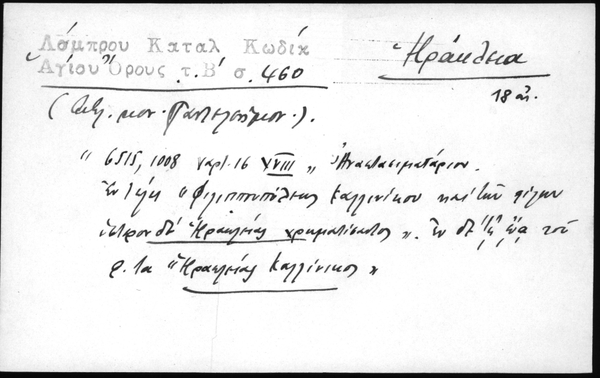 Λάμπρου Καταλ Κωδίκ
Ἁγίου Ὄρους τ.Β΄ σ. 460
Ἡράκλεια
18 αἰ.
(Βιβλ. μον. Παντελεήμον.).
"6515, 1008 χαρτ. 16 XVIII „ Ἀναστασιματάριον.
Ἐν τέλει "Φιλιππουπόλεως Καλλινίκου καὶ τῶν φίλων
ὕστερον δὲ Ἡρακλείας χρηματίσαντος". Ἐν δὲ τοῦ
φ. 1α "Ἡρακλείας Καλλίνικος"